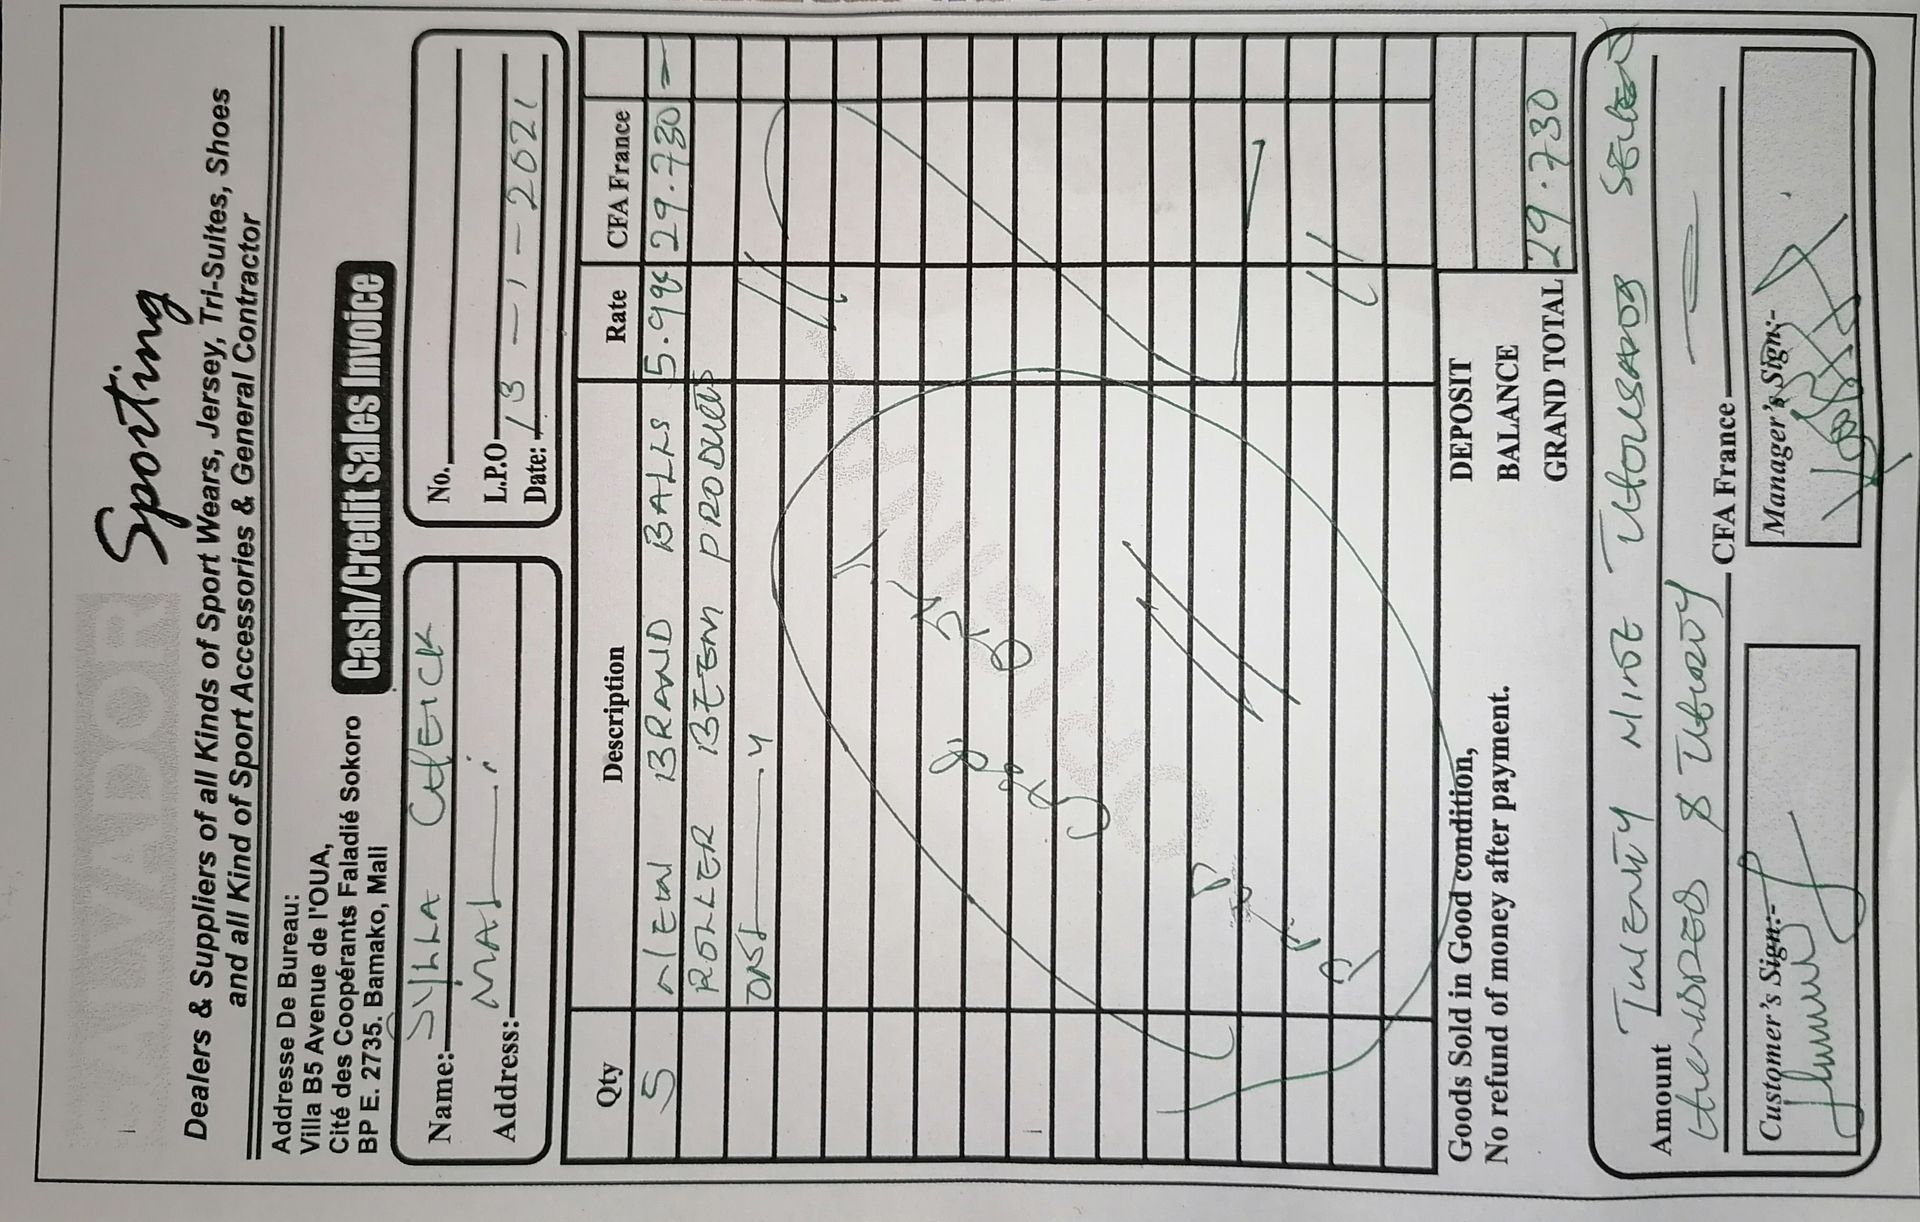 Sporting
Dealers & Suppliers of all Kinds of Sport Wears, Jersey, Tri-Suites, Shoes
and all Kind of Sport Accessories & General Contractor
Addresse De Bureau:
Villa B5 Avenue de l'OUA,
Cité des Coopérants Faladié Sokoro
BP E. 2735. Bamako, Mali
Cash/Credit Sales Invoice
Name: SYLLA CHEICK
Address: MALI
No.
L.P.O
Date: 13-1-2021
Qty Description Rate CFA France
5 NEW BRAND BALLS 29.730
ROLLER PRODUCTS
Goods Sold in Good condition,
No refund of money after payment.
DEPOSIT
BALANCE
GRAND TOTAL 29.730
Amount TWENTY NINE THOUSAND SEVEN
HUNDRED & THIRTY CFA France
Customer's Sign:-
Manager's Sign:-